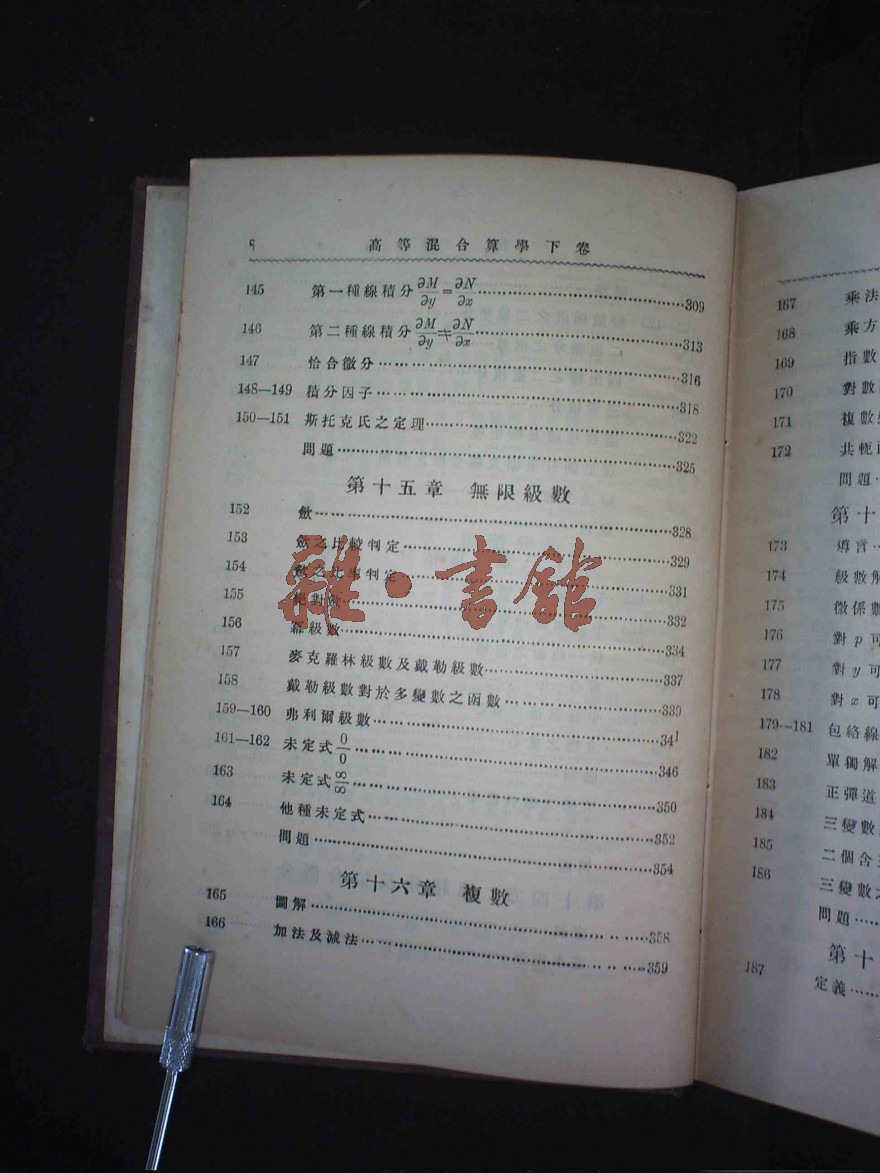 8 高等混合算學下卷
145 第一種線積分 ∂M/∂y = ∂N/∂x ……309
146 第二種線積分 ∂M/∂y ≠ ∂N/∂x ……313
147 恰合微分……316
148—149 積分因子……318
150—151 斯托克氏之定理……322
問題……325
第十五章 無限級數
152 斂……328
153 斂之比較判定……329
154 斂之比率判定……331
155 絕對斂……332
156 冪級數……334
157 麥克羅林級數及戴勒級數……337
158 戴勒級數對於多變數之函數……339
159—160 弗利爾級數……341
161—162 未定式 0/0 ……346
163 未定式 ∞/∞ ……350
164 他種未定式……352
問題……354
第十六章 複數
165 圖解……358
166 加法及減法……359
雜·書館
167 乘法
168 乘方
169 指數
170 對數
171 複數
172 共軛
問題
第十
173 導言
174 級數解
175 微係數
176 對 p 可
177 對 y 可
178 對 x 可
179—181 包絡線
182 單獨解
183 正彈道
184 三變數
185 二個含三
186 三變數之
問題……
第十
187 定義……